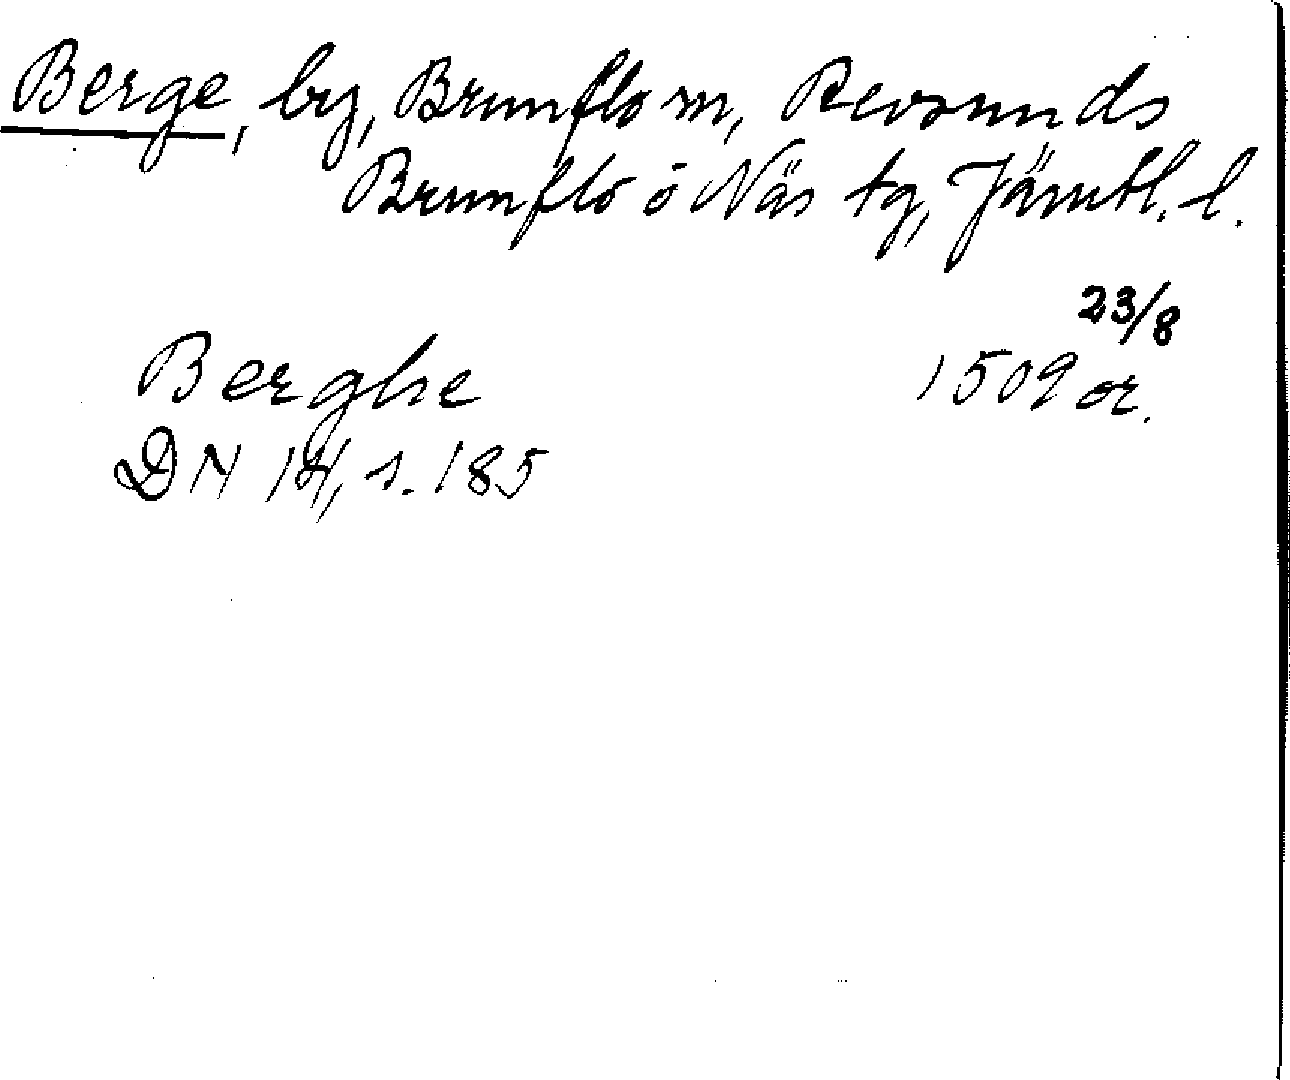 Berge, by, Brunflo sn, Revsunds
Brunflo o Näs tg, Jämtl. l.
23/8
Berghe 1509 or.
DN 14, s. 185